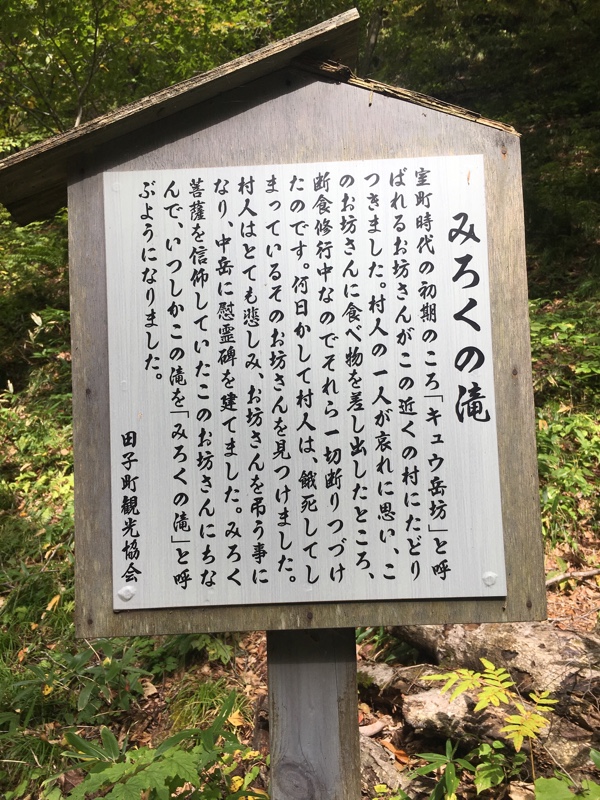 みろくの滝
室町時代の初期のころ「キュウ岳坊」と呼
ばれるお坊さんがこの近くの村にたどり
つきました。村人の一人が哀れに思い、こ
のお坊さんに食べ物を差し出したところ、
断食修行中なのでそれら一切断りつづけ
たのです。何日かして村人は、餓死してし
まっているそのお坊さんを見つけました。
村人はとても悲しみ、お坊さんを弔う事に
なり、中岳に慰霊碑を建てました。みろく
菩薩を信仰していたこのお坊さんにちな
んで、いつしかこの滝を「みろくの滝」と呼
ぶようになりました。
田子町観光協会